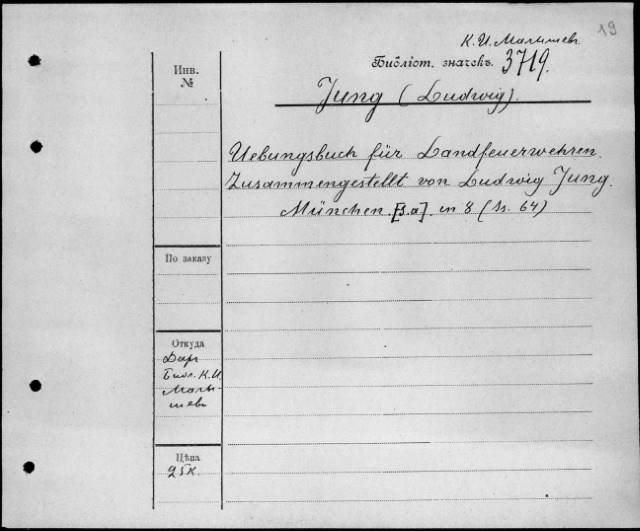 19
К. И. Малышев.
Библіот. значекъ. 3719.
Инв.
№
Jung (Ludwig).
Uebungsbuch für Landfeuerwehren.
Zusammengestellt von Ludwig Jung.
München. [s.a]. in 8 (ss. 64)
По заказу
Откуда
Дар
Библ. К.И.
Малы-
шева
Цѣна
25к.